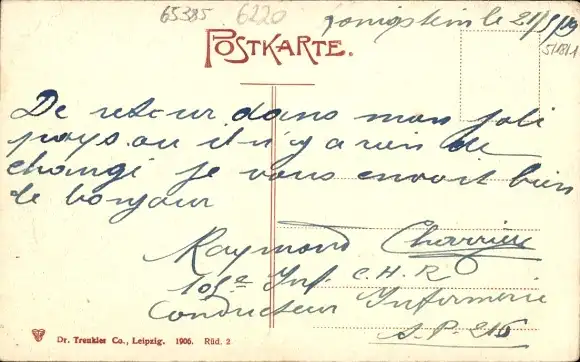 65385 6220 Konigstein le 21/5/19
51811
POSTKARTE.
De retour dans mon joli
pays ou il n'y a rien de
changé je vous envoit bien
le bonjour
Raymond Charrière
109e Inf. C.H.R
Conducteur Infirmerie
S.P. 216
Dr. Trenkler Co., Leipzig. 1906. Rüd. 2